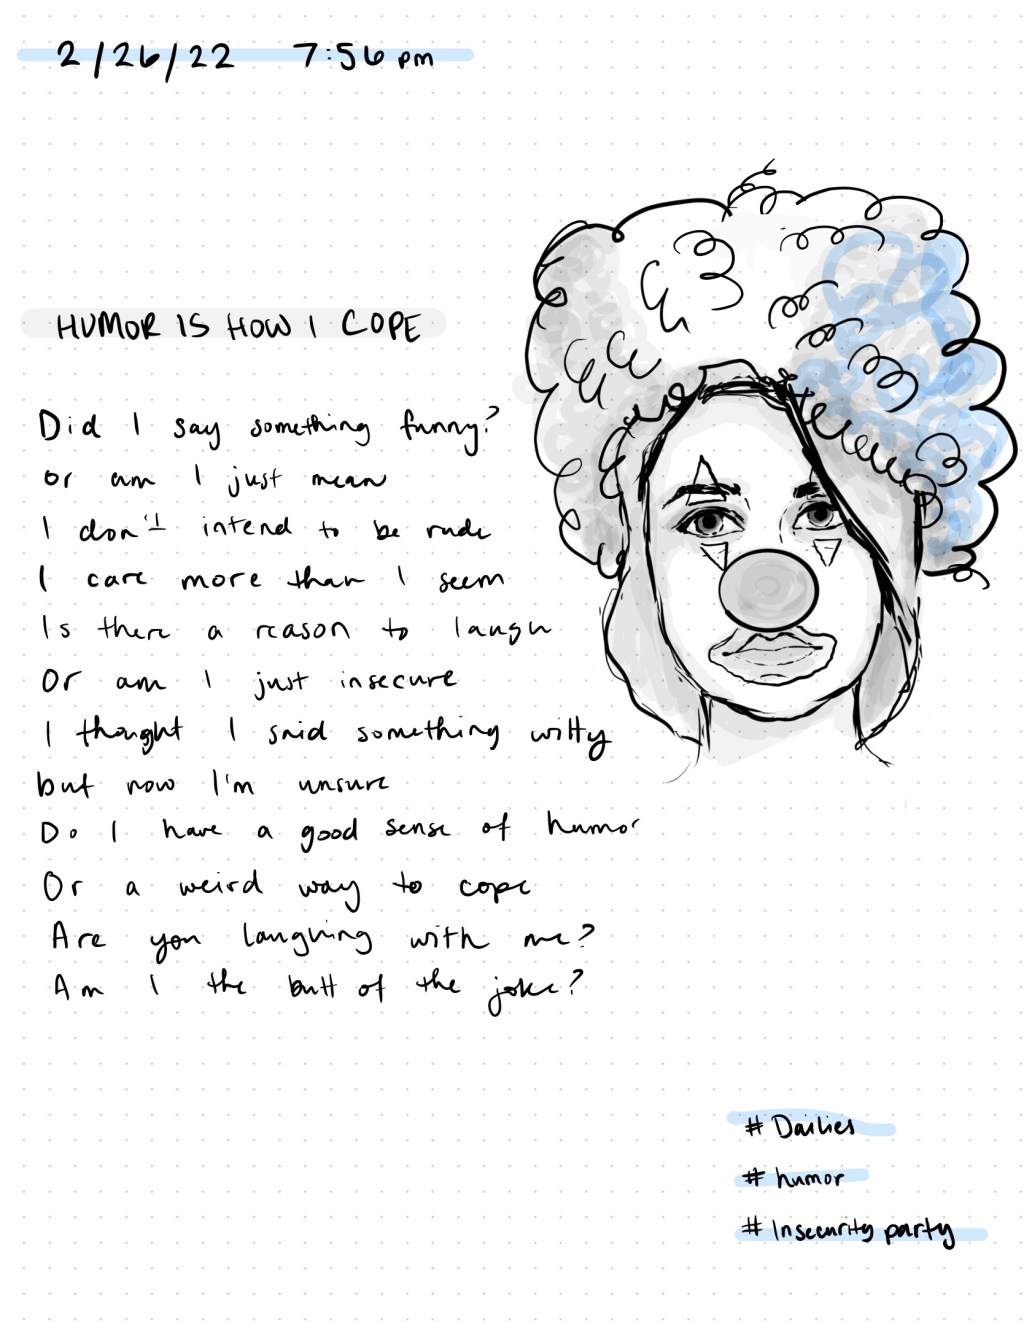 2/26/22 7:56 pm
HUMOR IS HOW I COPE
Did I say something funny?
or am I just mean
I don't intend to be rude
I care more than I seem
Is there a reason to laugh
Or am I just insecure
I thought I said something witty
but now I'm unsure
Do I have a good sense of humor
Or a weird way to cope
Are you laughing with me?
Am I the butt of the joke?
# Dailies
# humor
# Insecurity party